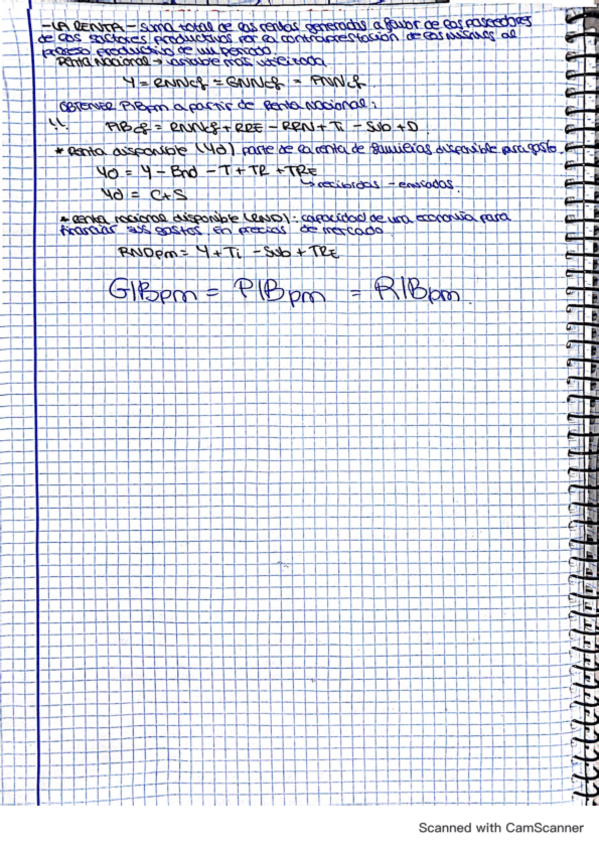 -LA RENTA- suma total de las rentas generadas a favor de los poseedores
de los factores productivos por la contraprestación de los mismos al
proceso productivo de un periodo.
Renta Nacional → variable más utilizada
Y = RNNcf = GNNcf = PNNcf
OBTENER PIBpm a partir de Renta Nacional:
!! PIBcf = RNNcf + RRE - RRN + Ti - Sub + D
* Renta disponible (Yd) parte de la renta de familias disponible para gasto.
Yd = Y - Bnd - T + TR + TRE
↳ recibidas - enviadas.
Yd = C + S
* Renta nacional disponible (RND): capacidad de una economía para
financiar sus gastos en precios de mercado
RNDpm = Y + Ti - Sub + TRE
GIBpm = PIBpm = RIBpm
Scanned with CamScanner